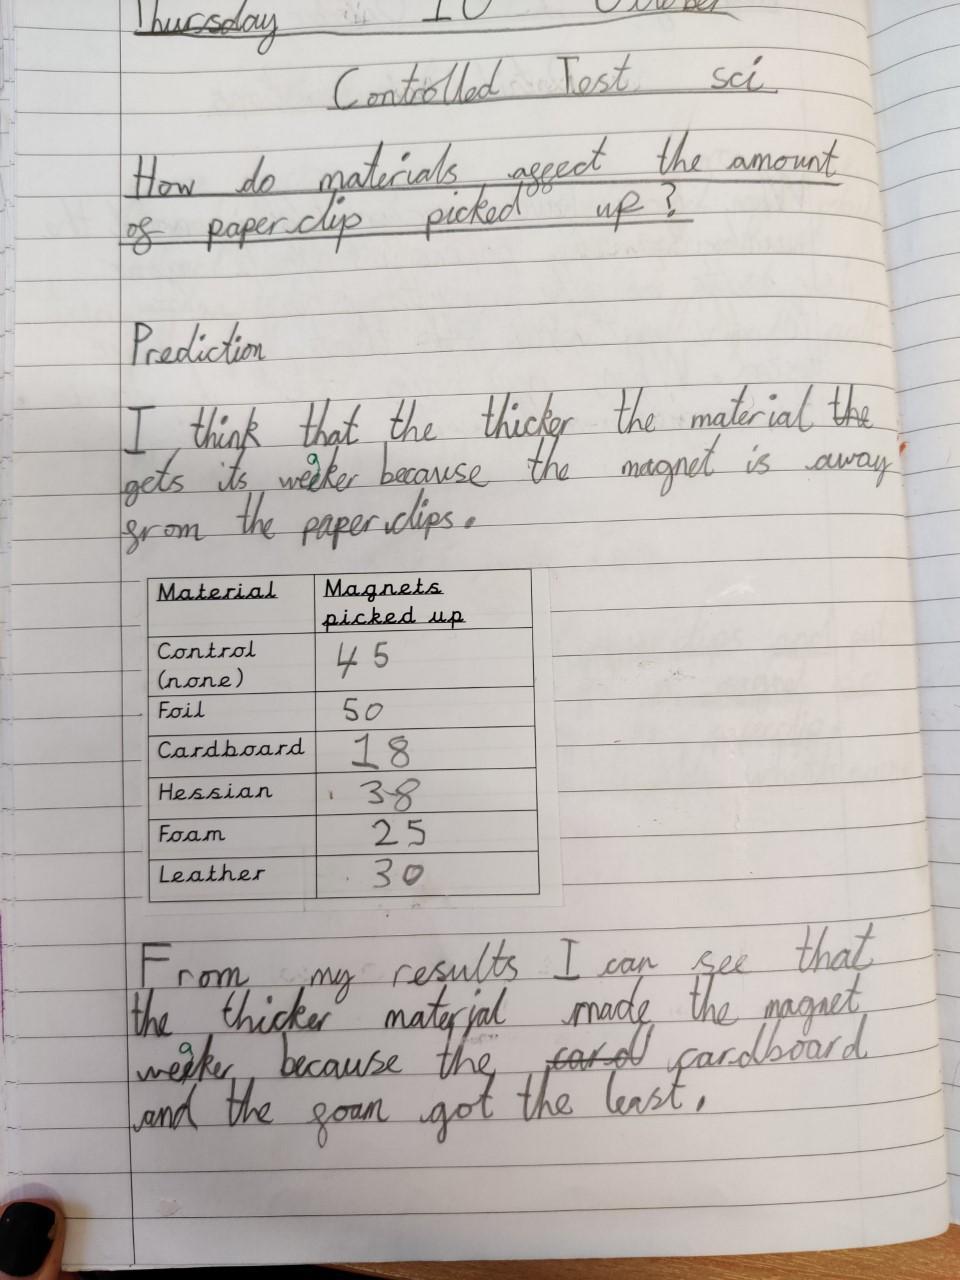 Thursday 10 October
Controlled Test sci
How do materials affect the amount
of paperclip picked up?
Prediction
I think that the thicker the material the
gets its weaker because the magnet is away
from the paperclips.
Material Magnets
picked up
Control
(none) 45
Foil 50
Cardboard 18
Hessian 38
Foam 25
Leather 30
From my results I can see that
the thicker material made the magnet
weaker because the card cardboard
and the foam got the least.